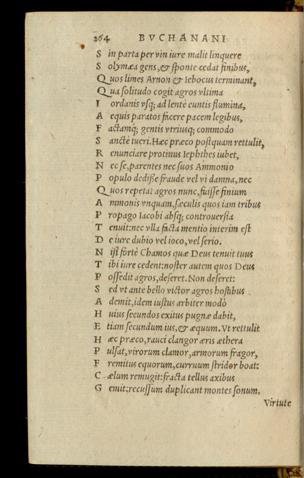 264 BVCHANANI
S in parta per vin iure malit linquere
S olymæa gens, & sponte cedat finibus,
Q uos limes Arnon & Iebocus terminant,
Q ua solitudo cogit agros vltima
I ordanis vsq; ad lentè euntis flumina,
A equis paratos ficere pacem legibus,
F actamq; gentis vtriusq; commodo
S anctè tueri. Hæc præco postquam rettulit,
R enunciare protinus Iephthes iubet,
N ec se, parentes nec suos Ammonio
P opulo dedisse fraude vel vi damna, nec
Q uos repetat agros nunc, fuisse finium
A mmonis vnquam, sæculis quos iam tribus
P ropago Iacobi absq; controuersia
T enuit: nec vlla facta mentio interim est
D e iure dubio vel ioco, vel serio.
N isi fortè Chamos quæ Deus tenuit tuus
T ibi iure cedent: noster autem quos Deus
P ossedit agros, deseret. Non deseret:
S ed vt ante bello victor agros hostibus
A demit, idem iustus arbiter modò
H uius secundos exitus pugnæ dabit,
E tiam secundum ius, & æquum. Vt rettulit
H æc præco, rauci clangor æris æthera
P ulsat, virorum clamor, armorum fragor,
F remitus equorum, curruum stridor boat:
C ælum remugit: fracta tellus axibus
G emit: recussum duplicant montes sonum.
Virtute